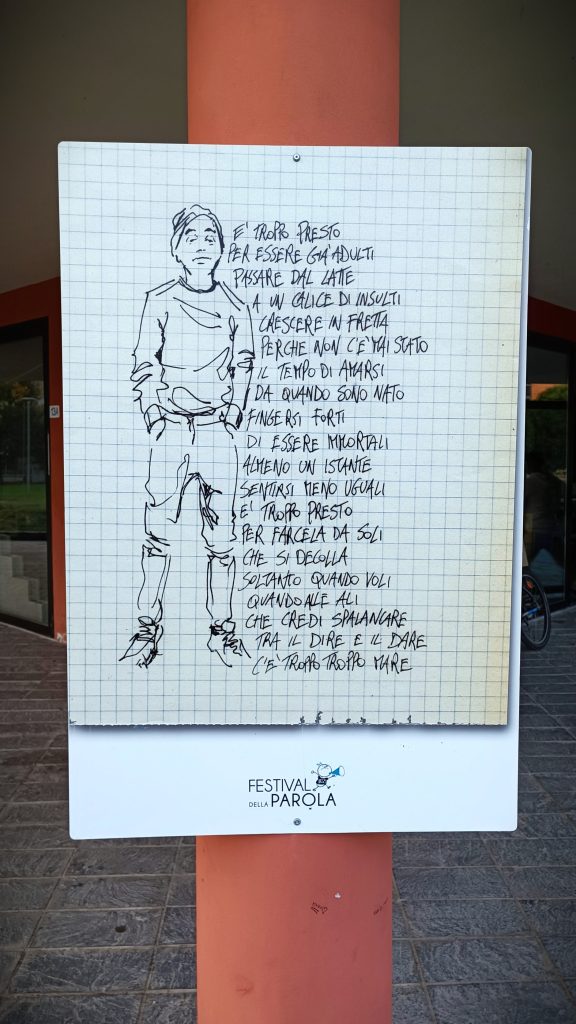 E' TROPPO PRESTO
PER ESSERE GIA' ADULTI
PASSARE DAL LATTE
A UN CALICE DI INSULTI
CRESCERE IN FRETTA
PERCHE NON C'E' MAI STATO
IL TEMPO DI AMARSI
DA QUANDO SONO NATO
FINGERSI FORTI
DI ESSERE IMMORTALI
ALMENO UN ISTANTE
SENTIRSI MENO UGUALI
E' TROPPO PRESTO
PER FARCELA DA SOLI
CHE SI DECOLLA
SOLTANTO QUANDO VOLI
QUANDO ALE ALI
CHE CREDI SPALANCARE
TRA IL DIRE E IL DARE
C'E' TROPPO TROPPO MARE
FESTIVAL
DELLA PAROLA